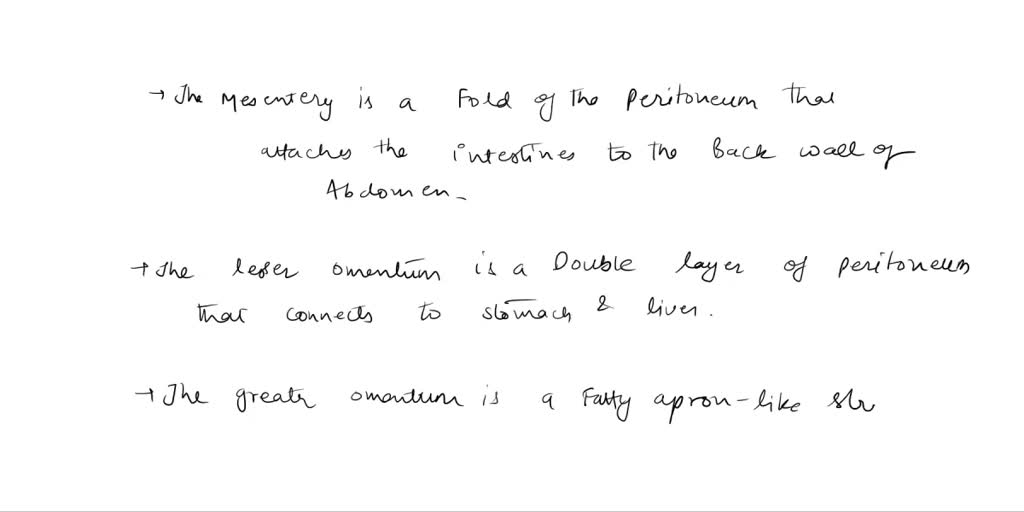 → The Mesentery is a Fold of the Peritoneum that
attaches the intestines to the Back wall of
Abdomen.
→ The lesser omentum is a Double layer of peritoneum
that connects to stomach & liver.
→ The greatr omentum is a Fatty apron-like str